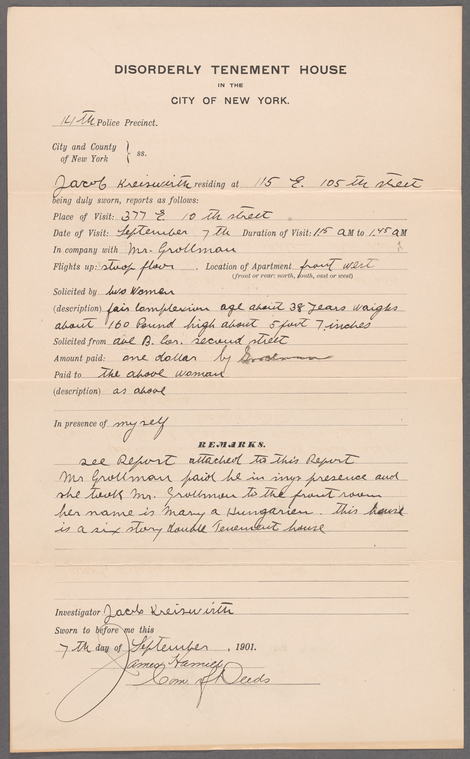 DISORDERLY TENEMENT HOUSE
IN THE
CITY OF NEW YORK.
14th Police Precinct.
City and County
of New York } ss.
Jacob Kreiswirth residing at 115 E. 105th street
being duly sworn, reports as follows:
Place of Visit: 377 E 10th street
Date of Visit: September 7th Duration of Visit: 1.15 AM to 1.45 AM
In company with Mr. Grollman
Flights up: stoop floor . Location of Apartment front west
(front or rear: north, south, east or west)
Solicited by two Woman
(description) fair Complexion age about 38 years waighs
about 160 Pound high about 5 foot 7 inches
Solicited from ave B. Cor. second street
Amount paid: one dollar by
Paid to the above woman
(description) as above
In presence of myself
REMARKS.
see Report attached to this Report
Mr Grollman paid he in mys presence and
she took Mr. Grollman to the front room
her name is Mary a Hungarien. this house
is a six story double Tenement house
Investigator Jacob Kreiswirth
Sworn to before me this
7th day of September , 1901.
James Hamill
Com. of Deeds